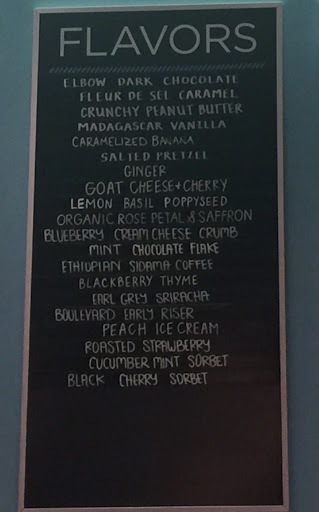 FLAVORS
ELBOW DARK CHOCOLATE
FLEUR DE SEL CARAMEL
CRUNCHY PEANUT BUTTER
MADAGASCAR VANILLA
CARAMELIZED BANANA
SALTED PRETZEL
GINGER
GOAT CHEESE + CHERRY
LEMON BASIL POPPYSEED
ORGANIC ROSE PETAL & SAFFRON
BLUEBERRY CREAM CHEESE CRUMB
MINT CHOCOLATE FLAKE
ETHIUPIAN SIDAMA COFFEE
BLACKBERRY THYME
EARL GREY SRIRACHA
BOULEVARD EARLY RISER
PEACH ICE CREAM
ROASTED STRAWBERRY
CUCUMBER MINT SORBET
BLACK CHERRY SORBET